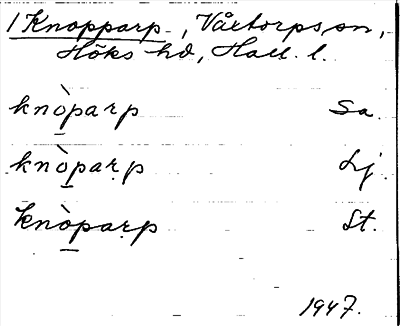 1 Knopparp, Våxtorps sn,
Höks hd, Hall. l.
knò̱parp Sa.
knò̱paṛp Lj.
knò̱paṛp St.
1947.